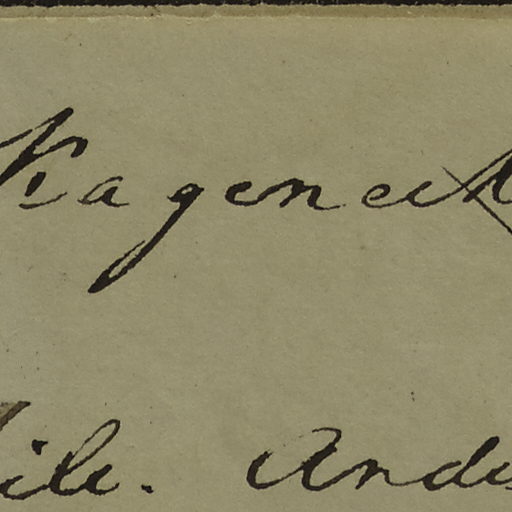 Kageneck
ile. Ande